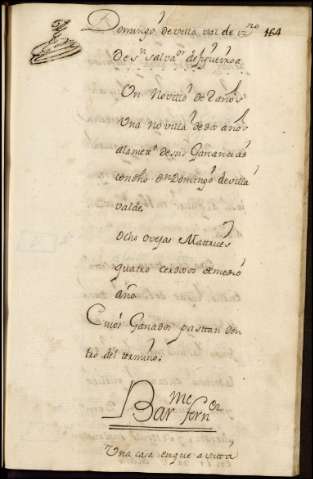 Domingo de villa val de vz.no 164
De Sn. Salvaor. de figueiroa
Un Novillo de 2 años
Una Novilla de dos años
alamera. de sus Ganancias
con dho Dn. Domingo de villa
valde
Ocho ovejas Matrices
quatro cerdos de medio
año
Cuios Ganados pastan den
tro del termino:
Barme. forn
Una casa en que avita